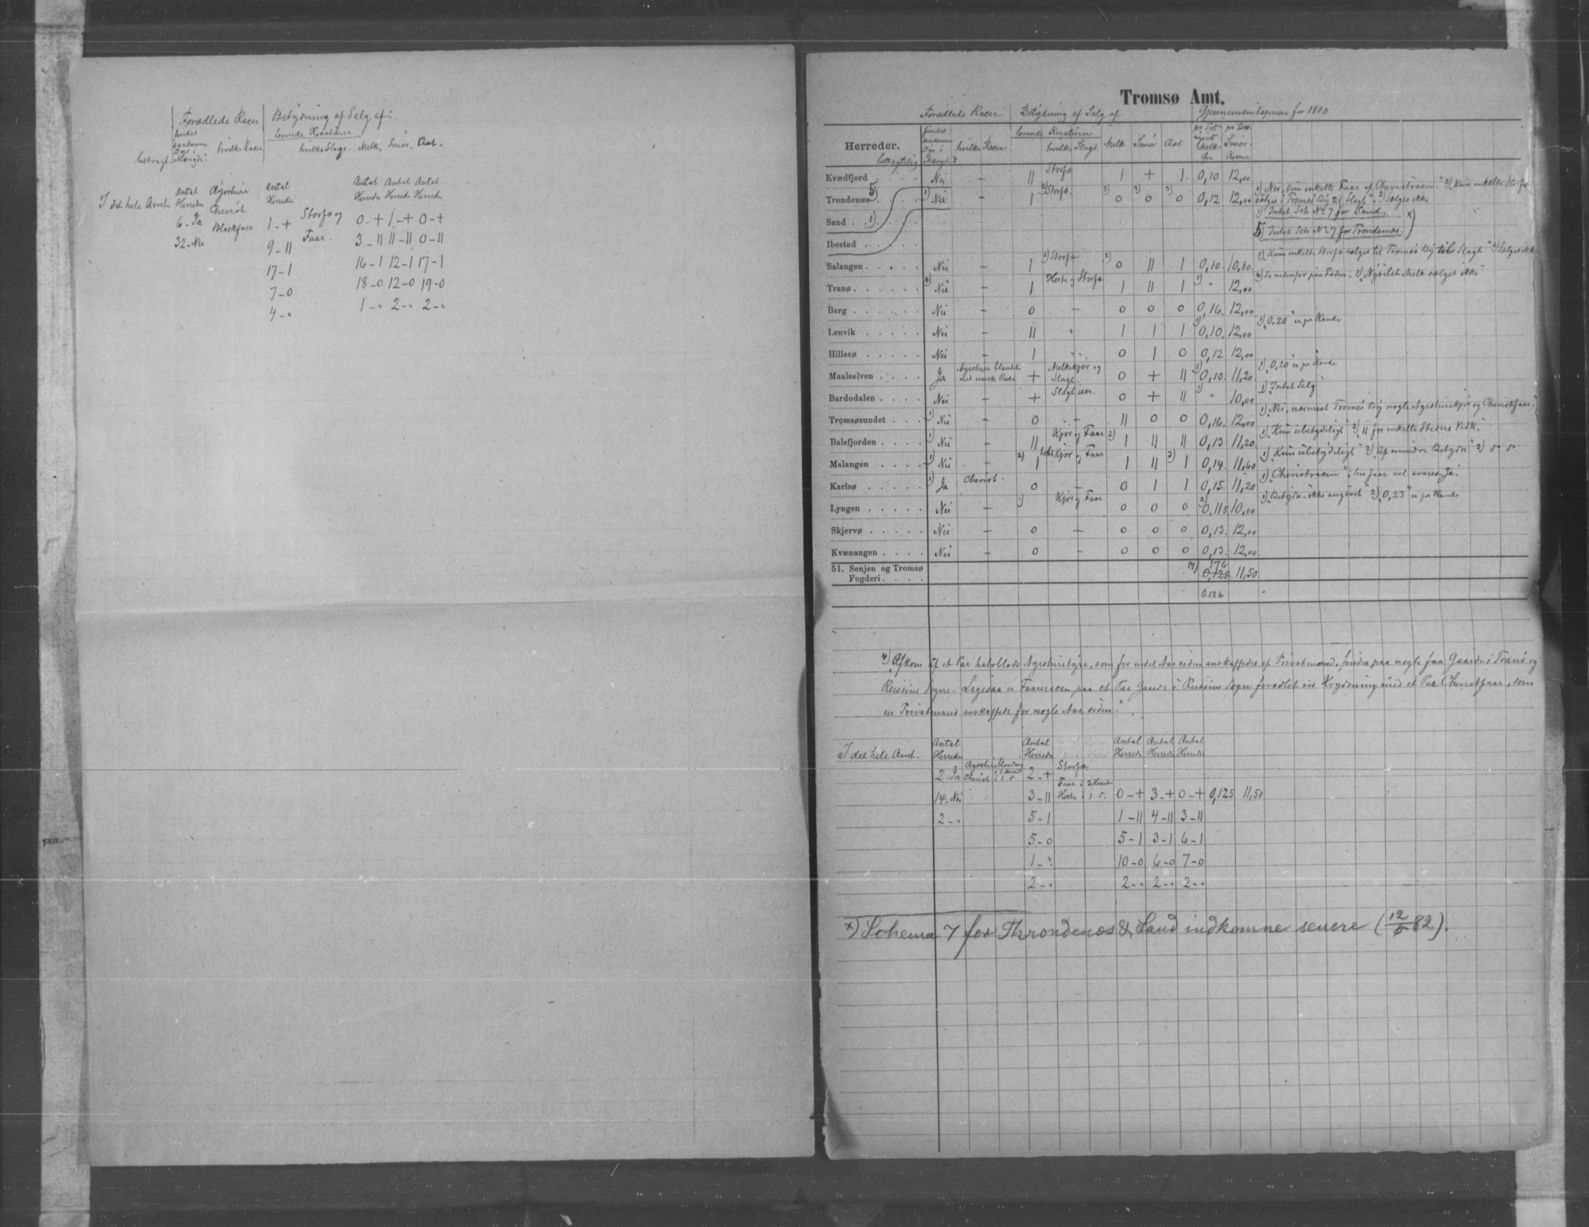 Forædlede Racer Betydning af Salg af:
findes saadanne Dyr i betragt. Mængde hvilke Racer levende Kreaturer hvilke Slags. Melk. Smør. Ost.
I det hele Amt. Antal Herreder Ayrshire Cheviot Blackface Antal Herreder Storfæ og Faar. Antal Herreder Antal Herreder Antal Herreder
6 - Ja 1 - + 0 - + 1 - + 0 - +
32 - Nei 9 - || 3 - || 11 - || 0 - ||
17 - | 16 - | 12 - | 17 - |
7 - 0 18 - 0 12 - 0 19 - 0
4 - " 1 - " 2 - " 2 - "
Tromsø Amt.
Forædlede Racer Betydning af Salg af Gjennemsnitspriser for 1880
Herreder. hvilke Racer levende Kreaturer hvilke Slags. Melk Smør Ost
Kvædfjord Nei - || Storfæ | + | 0,10 12,00
Trondenæs 5) 1) Nei | 2) Storfæ. 3) 0 3) 0 3) 0 0,12 12,00 1) "Nei, kun enkelte Faar af Cheviotracen." 2) "Kun enkelte Storfæ sælges i Tromsø By til Slagt". 3) Sælges ikke
Sand 1) 1) Intet Sch. No 7 for Sand.
Ibestad 5) Intet Sch. No 7 for Trondenæs. x)
Salangen Nei - | 1) Storfæ 2) 0 || | 0,10 10,80 1) "Kun enkelte Storfæ sælges til Tromsø By til Slagt" 2) Sælges ikke
Tranø 4) Nei | Heste og Storfæ | || | 1) " 12,00 4) Se nedenfor paa Siden. 1) "Nysilet Melk sælges ikke"
Berg Nei - 0 - 0 0 0 0,16 12,00
Lenvik Nei - || " | | | 1) 0,10 12,00 1) "0,20" er pr Kande
Hillesø Nei - | " 0 | 0 0,12 12,00
Maalselven Ja Ayrshire blandede med norsk Race + Melkekjør og Slagt. 0 + || 1) 0,10 11,20 1) "0,20" er pr Kande
Bardodalen Nei - + 0 + || 1) " 10,00 1) "Intet Salg"
Tromsøsundet 1) Nei 0 - || 0 0 0,16 12,00 1) "Nei, nærmest Tromsø By nogle Ayrshirekjør og Cheviotfaar."
Balsfjorden 1) Nei || Kjør og Faar 2) | || || 0,13 11,20 1) "Kun ubetydeligt" 2) || for enkelte Steders Vedk."
Malangen 1) Nei - 2) | Kjør og Faar | || 3) | 0,14 11,60 1) "Kun ubetydeligt" 2) "Af mindre Betydn"
Karlsø 1) Ja Cheviot. 0 - 0 | | 0,15 11,20
Lyngen Nei - 1) Kjør og Faar 0 0 0 2) 0,115 10,00 1) Betydn. ikke angivet 2) "0,23" er pr Kande
Skjervø Nei - 0 - 0 0 0 0,13 12,00
Kvænangen Nei - 0 - 0 0 0 0,13 12,00
51. Senjen og Tromsø Fogderi 0,125 11,50
0.126
4) "Afkom af et Par halvblods Ayrshiretyre, som for endel Aar siden anskaffedes af Privatmænd, findes paa nogle faa Gaarde i Tranø og
Sogne. Ligesaa er Faareracen paa et Par Gaarde i Sogn forædlet ved Krydsning med et Par Cheviotfaar, som
en Privatmand anskaffede for nogle Aar siden."
I det hele Amt. Antal Herreder Antal Herreder Antal Herreder Antal Herreder Antal Herreder
2 Ja 2 - + Storfæ
14 - Nei 3 - || 0 - + 3 - + 0 - + 0,125 11,50
2 - " 5 - | 1 - || 4 - || 3 - ||
5 - 0 5 - | 3 - | 6 - |
1 - " 10 - 0 6 - 0 7 - 0
2 - " 2 - " 2 - " 2 - "
x) Schema 7 for Throndenæs & Sand indkomne senere (12/5 82).